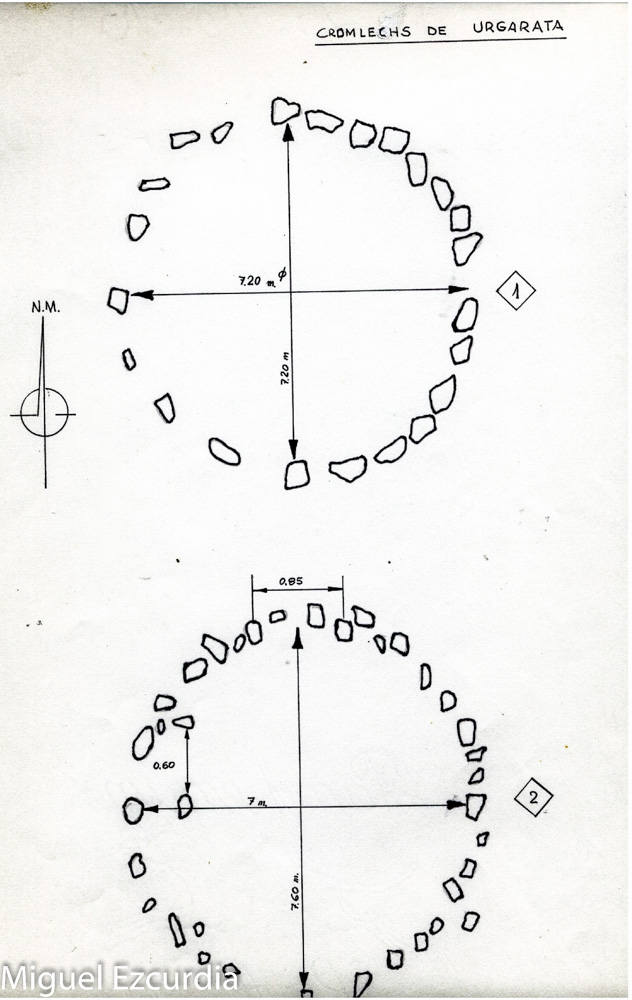 CROMLECHS DE URGARATA
7.20 m. φ
1
N.M.
7.20 m
0.85
0.60
7 m.
2
7.60 m.
Miguel Ezcurdia